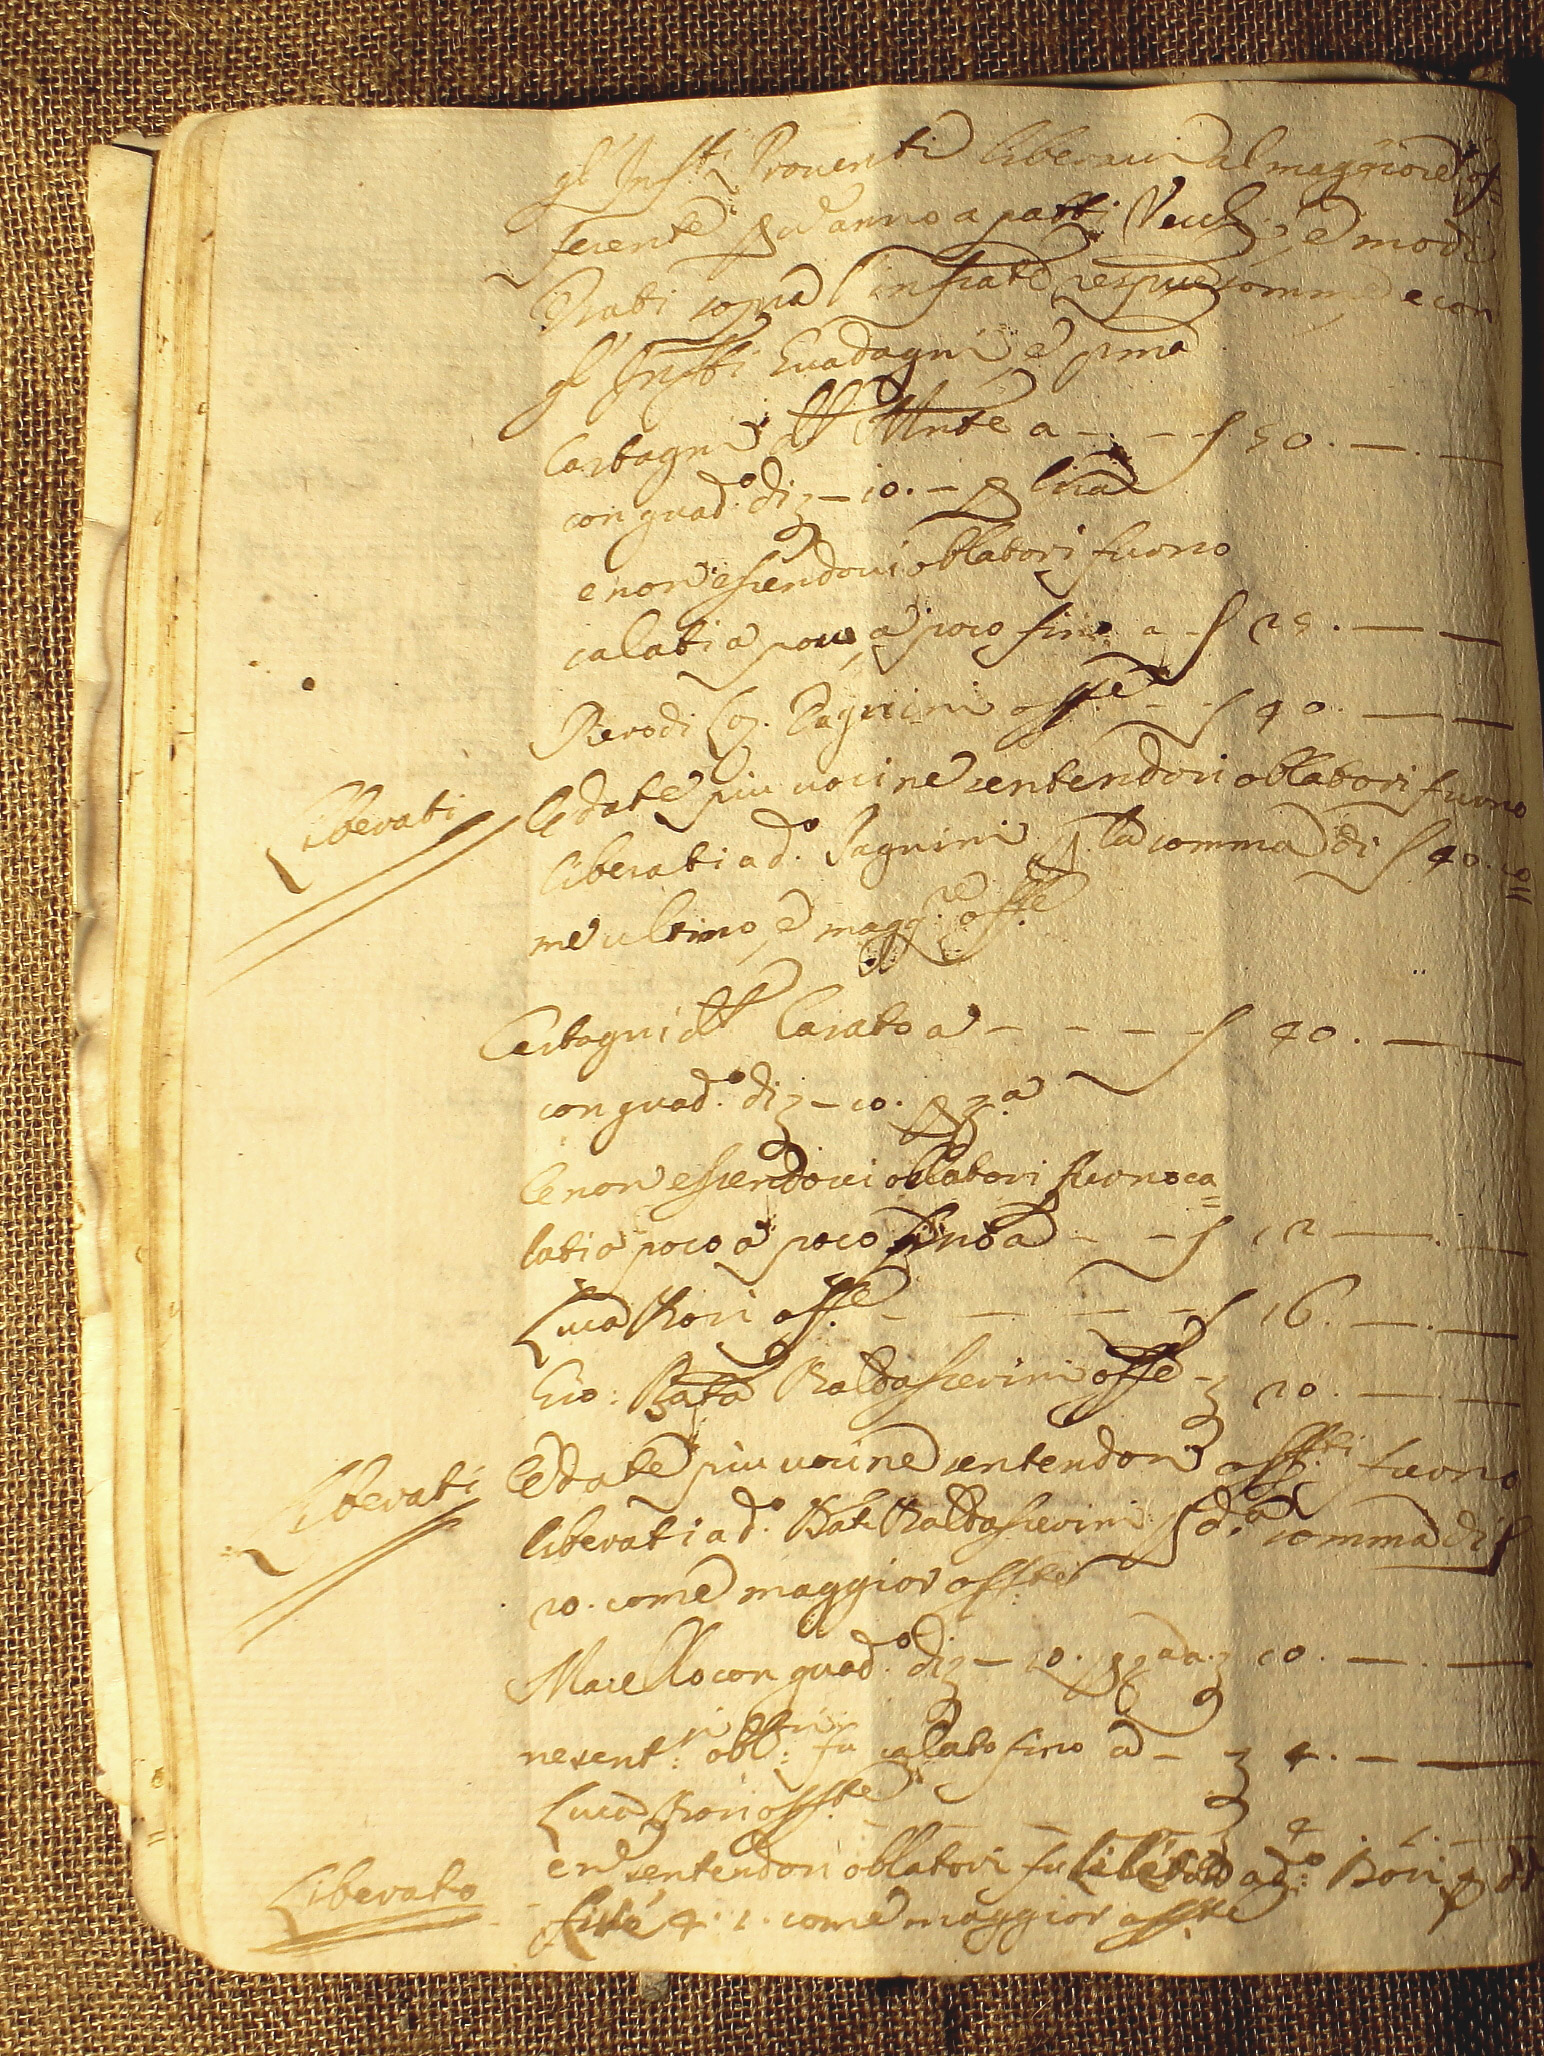 gl' Infr.ti Proventi liberarsi al maggiore of=
ferente p un anno a patti Vecchi, e mode
rati sopra l'infrate respive somme e con
gl' Infrti Guadagni e pma
Castagni dll' Monte a - - - 50. —
con guad.o di - 10. - p lira
e non essendovi oblatori furno
calati a poco a poco fino a - 25. — —
Piero di Pagnini offe - - 40. — —
Liberati
E date piu voci ne sentendovi oblatori furno
liberati a d.o Pagnini p la somma di 40. co=
me ultimo, e magg.re offe
Castagni dll' a - - - 40. — —
con guad.o di - 10. p
E non essendovi oblatori furno ca=
lati a poco a poco fino a - - 12 — —
Luca Bori offe - - - - 16. — —
Gio: Batta Baldasserini offe - 20. — —
Liberati
E date piu voci ne sentendovi furno
liberati a d.o Bat: Baldasserini p d.a somma di
20. come maggior offte
Macello con guad.o di - 10. p 10. — —
ne sent: obl: fu calato fino a - 4. — —
Luca Bori offte - - - 4. 1. —
Liberato
e ne sentendovi oblatori fu liberato a d.o Bori p
lire 4. 1. come maggior offte